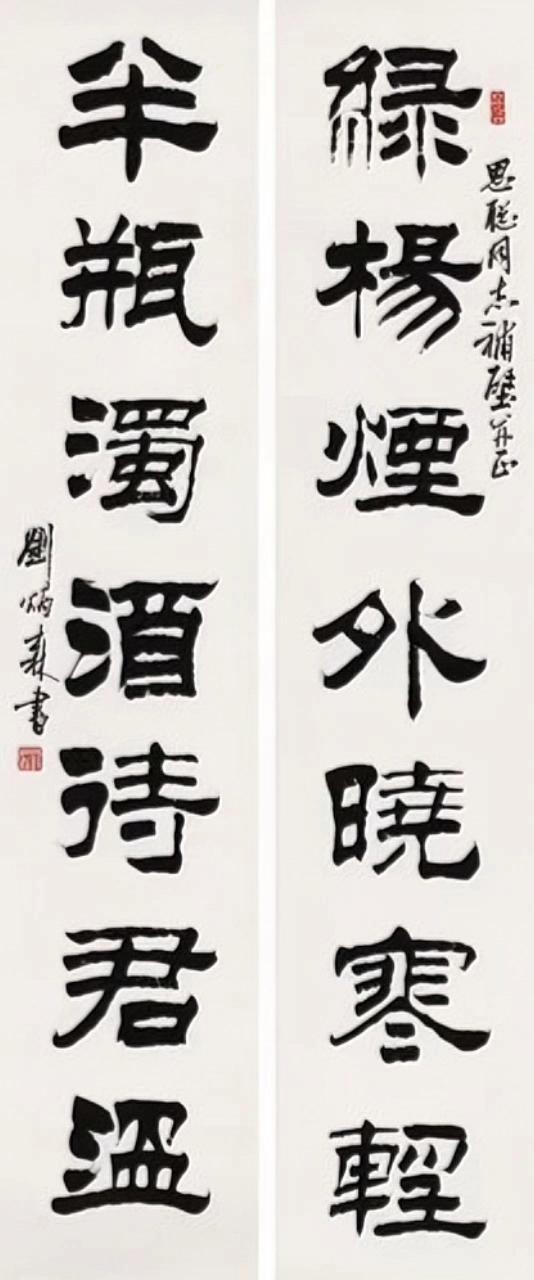 思聪同志補壁并正
綠楊煙外曉寒輕
半瓶濁酒待君溫
劉炳森書